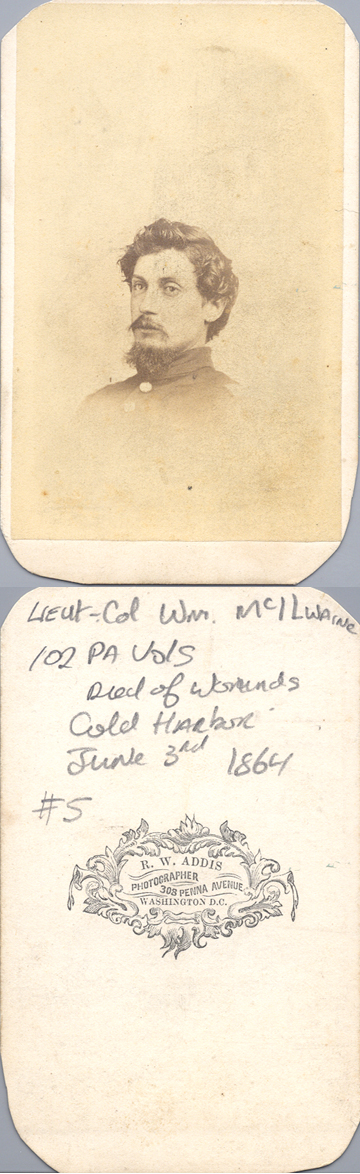 Lieut-Col Wm. McIlwaine
102 PA Vols
Died of Wounds
Cold Harbor
June 3rd 1864
#5
R. W. ADDIS
PHOTOGRAPHER
308 PENNA AVENUE
WASHINGTON D.C.